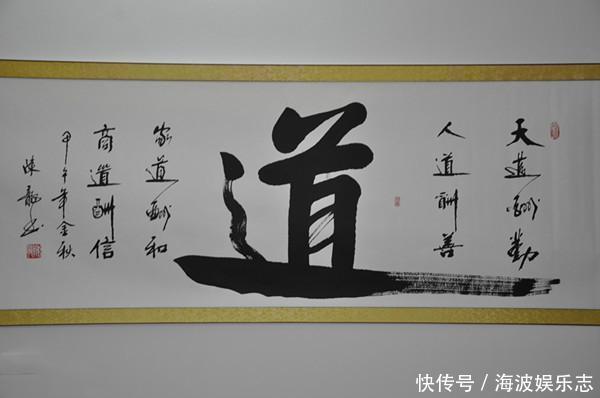 天道酬勤
人道酬善
道
家道酬和
商道酬信
甲午年金秋
陈龙书
快传号／海波娱乐志